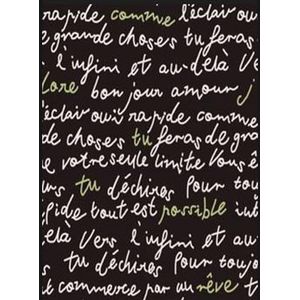 rapide comme l'éclair ou
e grande choses tu feras
l'infini et au-delà Ve
lore bon jour amour j
'éclair ou ù rapide comme
de choses tu feras de gra
e votre seule limite Vous ê
urs tu déchires Pour tou
pide tout est possible int
elà Vers l'infini et au
tu déchires Pour toujo
t commerce par un rêve t